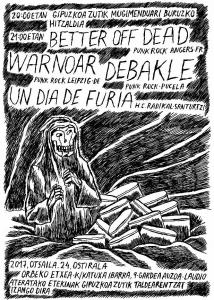 20:00ETAN GIPUZKOA ZUTIK MUGIMENDUARI BURUZKO
HITZALDIA
21:00ETAN BETTER OFF DEAD
PUNK ROCK ANGERS-FR
WARNOAR DEBAKLE
PUNK ROCK LEIZPIG-DE PUNK ROCK-PUCELA
UN DIA DE FURIA H.C RADIKAL-SANTURTZI
2017, OTSAILA. 24, OSTIRALA
ORBEKO ETXEA-K/KATUXA IBARRA, 9-GARDEA AUZOA-LAUDIO
ATERATAKO ETEKINAK GIPUZKOA ZUTIK TALDEARENTZAT
IZANGO DIRA